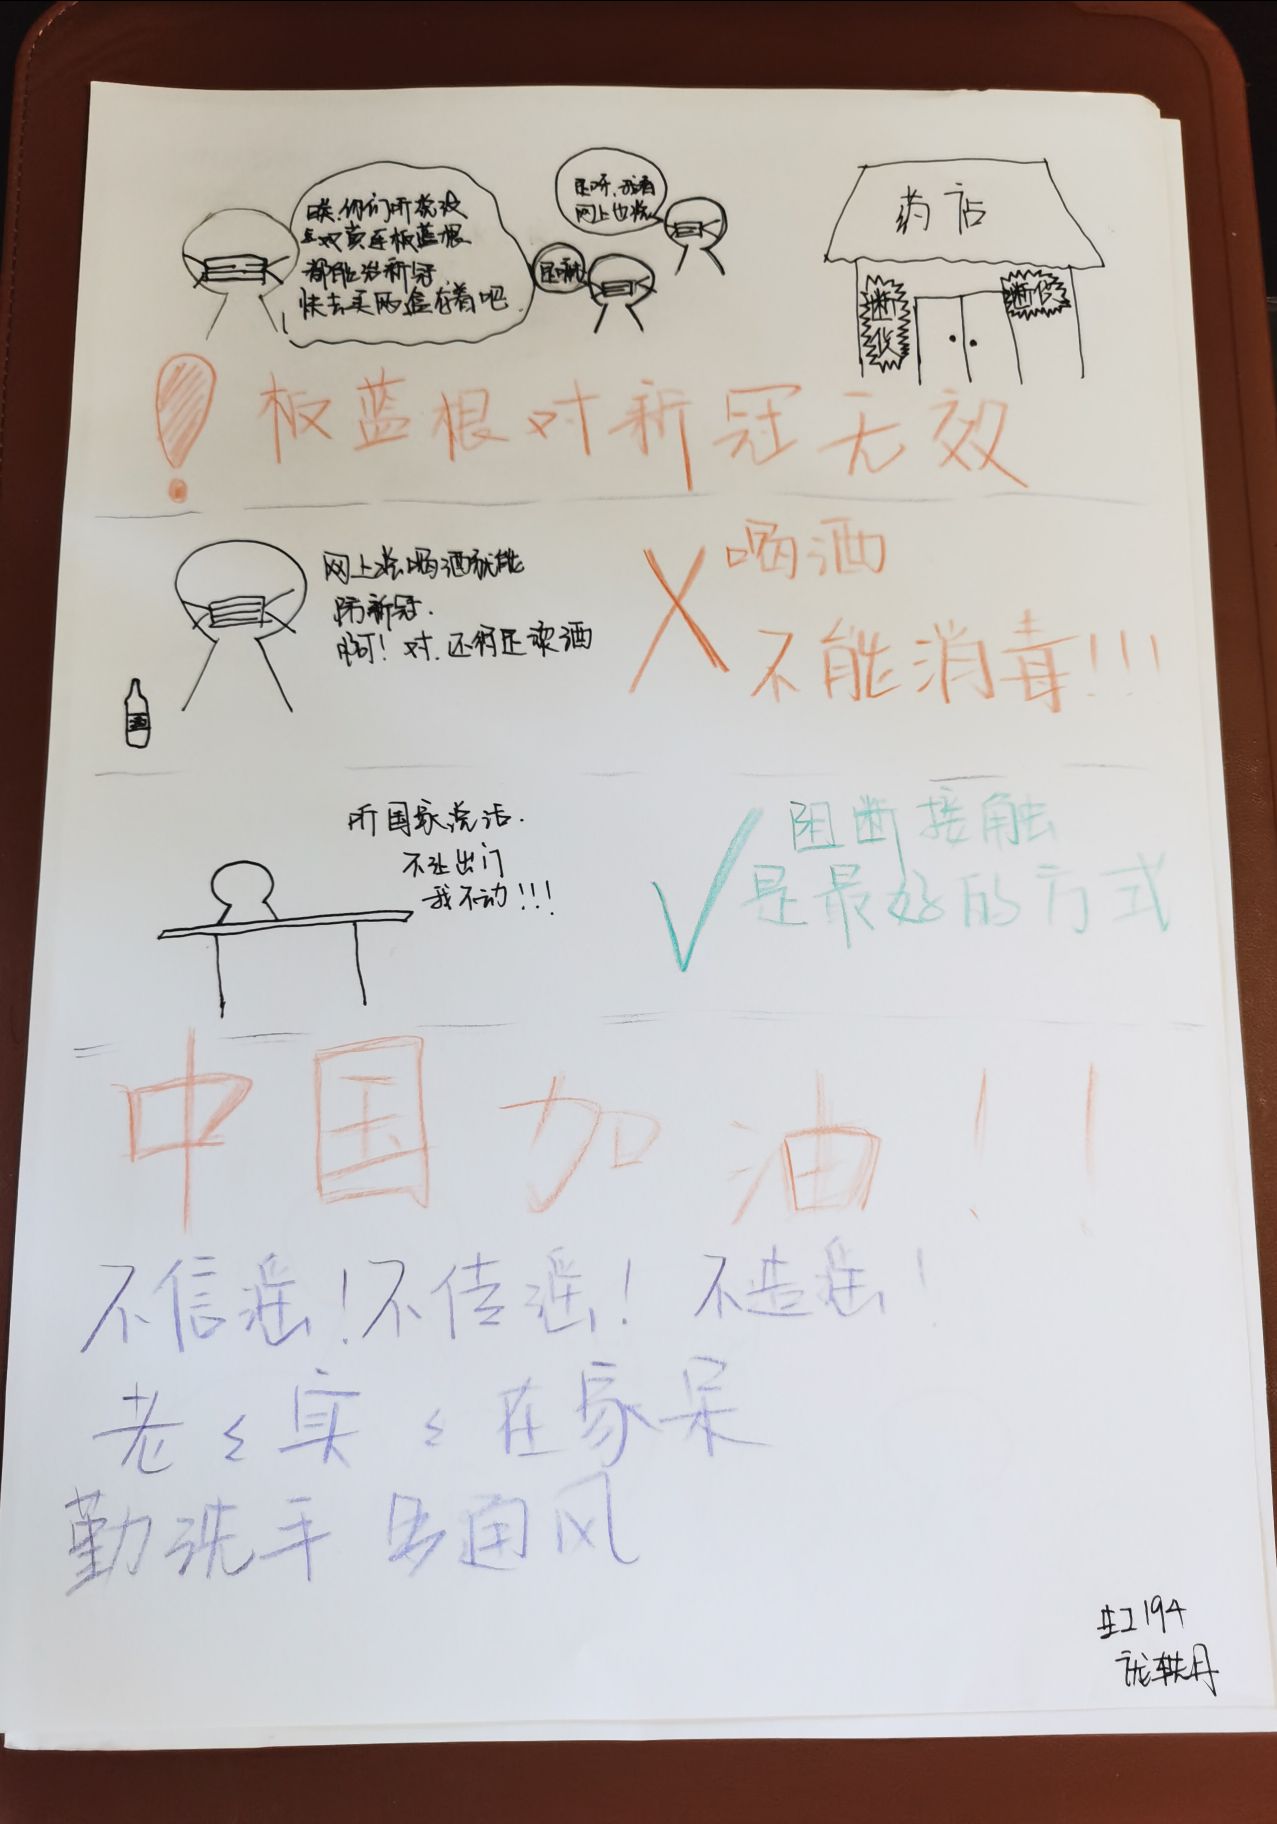 唉,你们听说没
双黄连板蓝根
都能治新冠,
快去买两盒存着吧
是嘛
是呀,我看
网上也说
药店
断货
断货
板蓝根对新冠无效
网上说喝酒就能
防新冠.
啊!对,还得是浓酒
酒
喝酒
不能消毒!!!
听国家说话.
不让出门
我不动!!!
阻断接触
是最好的方式
中国加油!!
不信谣!不传谣!不造谣!
老々实々在家呆
勤洗手 多通风
生工194